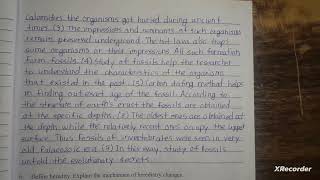 calamities the organisms got buried during ancient
times. (3) The impressions and remnants of such organisms
remains preserved underground. The hot lava also traps
some organisms or their impressions. All such formation
form fossils. (4) Study of fossils help the researcher
to understand the characteristics of the organisms
that existed in the past. (5) Carbon dating method helps
in finding out exact age of the fossil. According to
the structure of earth's crust the fossils are obtained
at the specific depths. (6) The oldest ones are obtained at
the depth while the relatively recent ones occupy the upper
surface. Thus fossils of invertebrates were seen in very
old Palaeozoic era. (7) In this way, study of fossils
unfold the evolutionary secrets.
Define heredity. Explain the mechanism of hereditary changes.
XRecorder